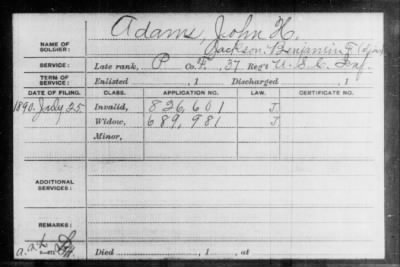 Adams, John H.
NAME OF SOLDIER: Jackson, Benjamin F. (alias)
SERVICE: Late rank, P Co. F, 37 Reg't U.S.C. Inf.
TERM OF SERVICE: Enlisted , 1 Discharged , 1
DATE OF FILING. CLASS. APPLICATION NO. LAW. CERTIFICATE NO.
1890. July 25 Invalid, 826,601 J.
Widow, 689,981 J.
Minor,
ADDITIONAL SERVICES:
REMARKS:
Died , 1 , at